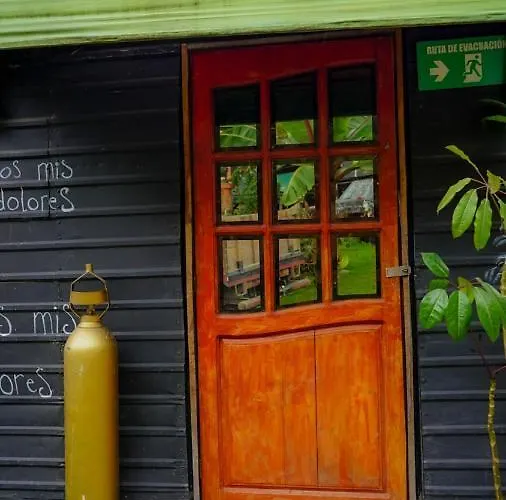 RUTA DE EVACUACIÓN
os mis
dolores
s mis
ores